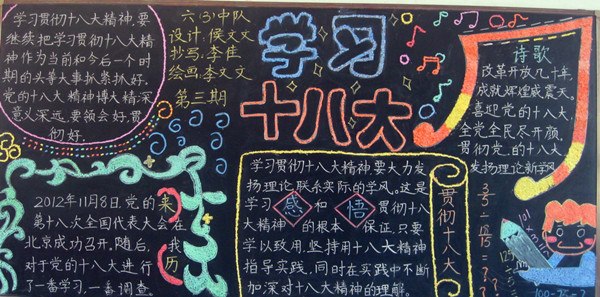 学习贯彻十八大精神,要
继续把学习贯彻十八大精
神作为当前和今后一个时
期的头等大事抓紧抓好。
党的十八大精神博大精深,
意义深远,要领会好,贯
彻好。
六(3)中队
设计:侯文文
抄写:李佳
绘画:李文文
第三期
学习
十八大
诗歌
改革开放几十年,
成就辉煌威震天。
喜迎党的十八大,
全党全民尽开颜。
贯彻党的十八大
发扬理论新学风。
2012年11月8日,党的
第十八次全国代表大会在
北京成功召开,随后,
对于党的十八大进行
了一番学习,一番调查。
来
我
历
学习贯彻十八大精神要大力发
扬理论联系实际的学风。这是
学习 感 和 悟 贯彻十八
大精神 的根本 保证,只要
学以致用,坚持用十八大精神
指导实践,同时在实践中不断
加深对十八大精神的理解。
贯彻十八大